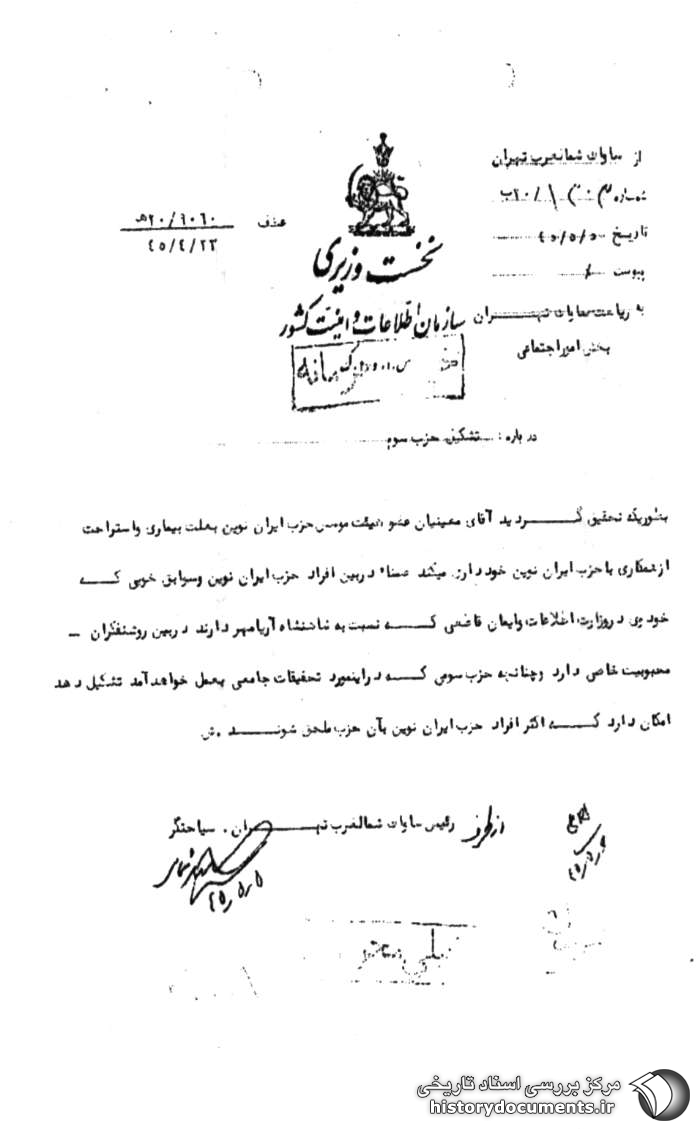 از ساواک شمالغرب تهران
شماره
تاریخ
پیوست
عطف ۲۰/۹۰۶۰هـ
۴۵/۴/۲۳
نخست وزیری
سازمان اطلاعات و امنیت کشور
به ریاست ساواک تهـــران
بخش امور اجتماعی
درباره : تشکیل حزب سوم
بطوریکه تحقیق گـــردید آقای معینیان عضو هیئت موسس حزب ایران نوین بعلت بیماری واستراحت
ازهمکاری با حزب ایران نوین خودداری میکند ضمنا" دربین افراد حزب ایران نوین وسوابق خوبی کـــه
خود وی دروزارت اطلاعات وایمان قاطعی کـــه نسبت به شاهنشاه آریامهر دارند دربین روشنفکران –
محبوبیت خاصی دارد وچنانچه حزب سومی کـــه دراینمورد تحقیقات جامعی بعمل خواهدآمد تشکیل دهد
امکان دارد کـــه اکثر افراد حزب ایران نوین بآن حزب ملحق شونـــد .ش
رئیس ساواک شمالغرب تهـــران . سیاحتگر
از طرف
۴۵/۵/۵
خیلی محرمانه
مرکز بررسی اسناد تاریخی
historydocuments.ir